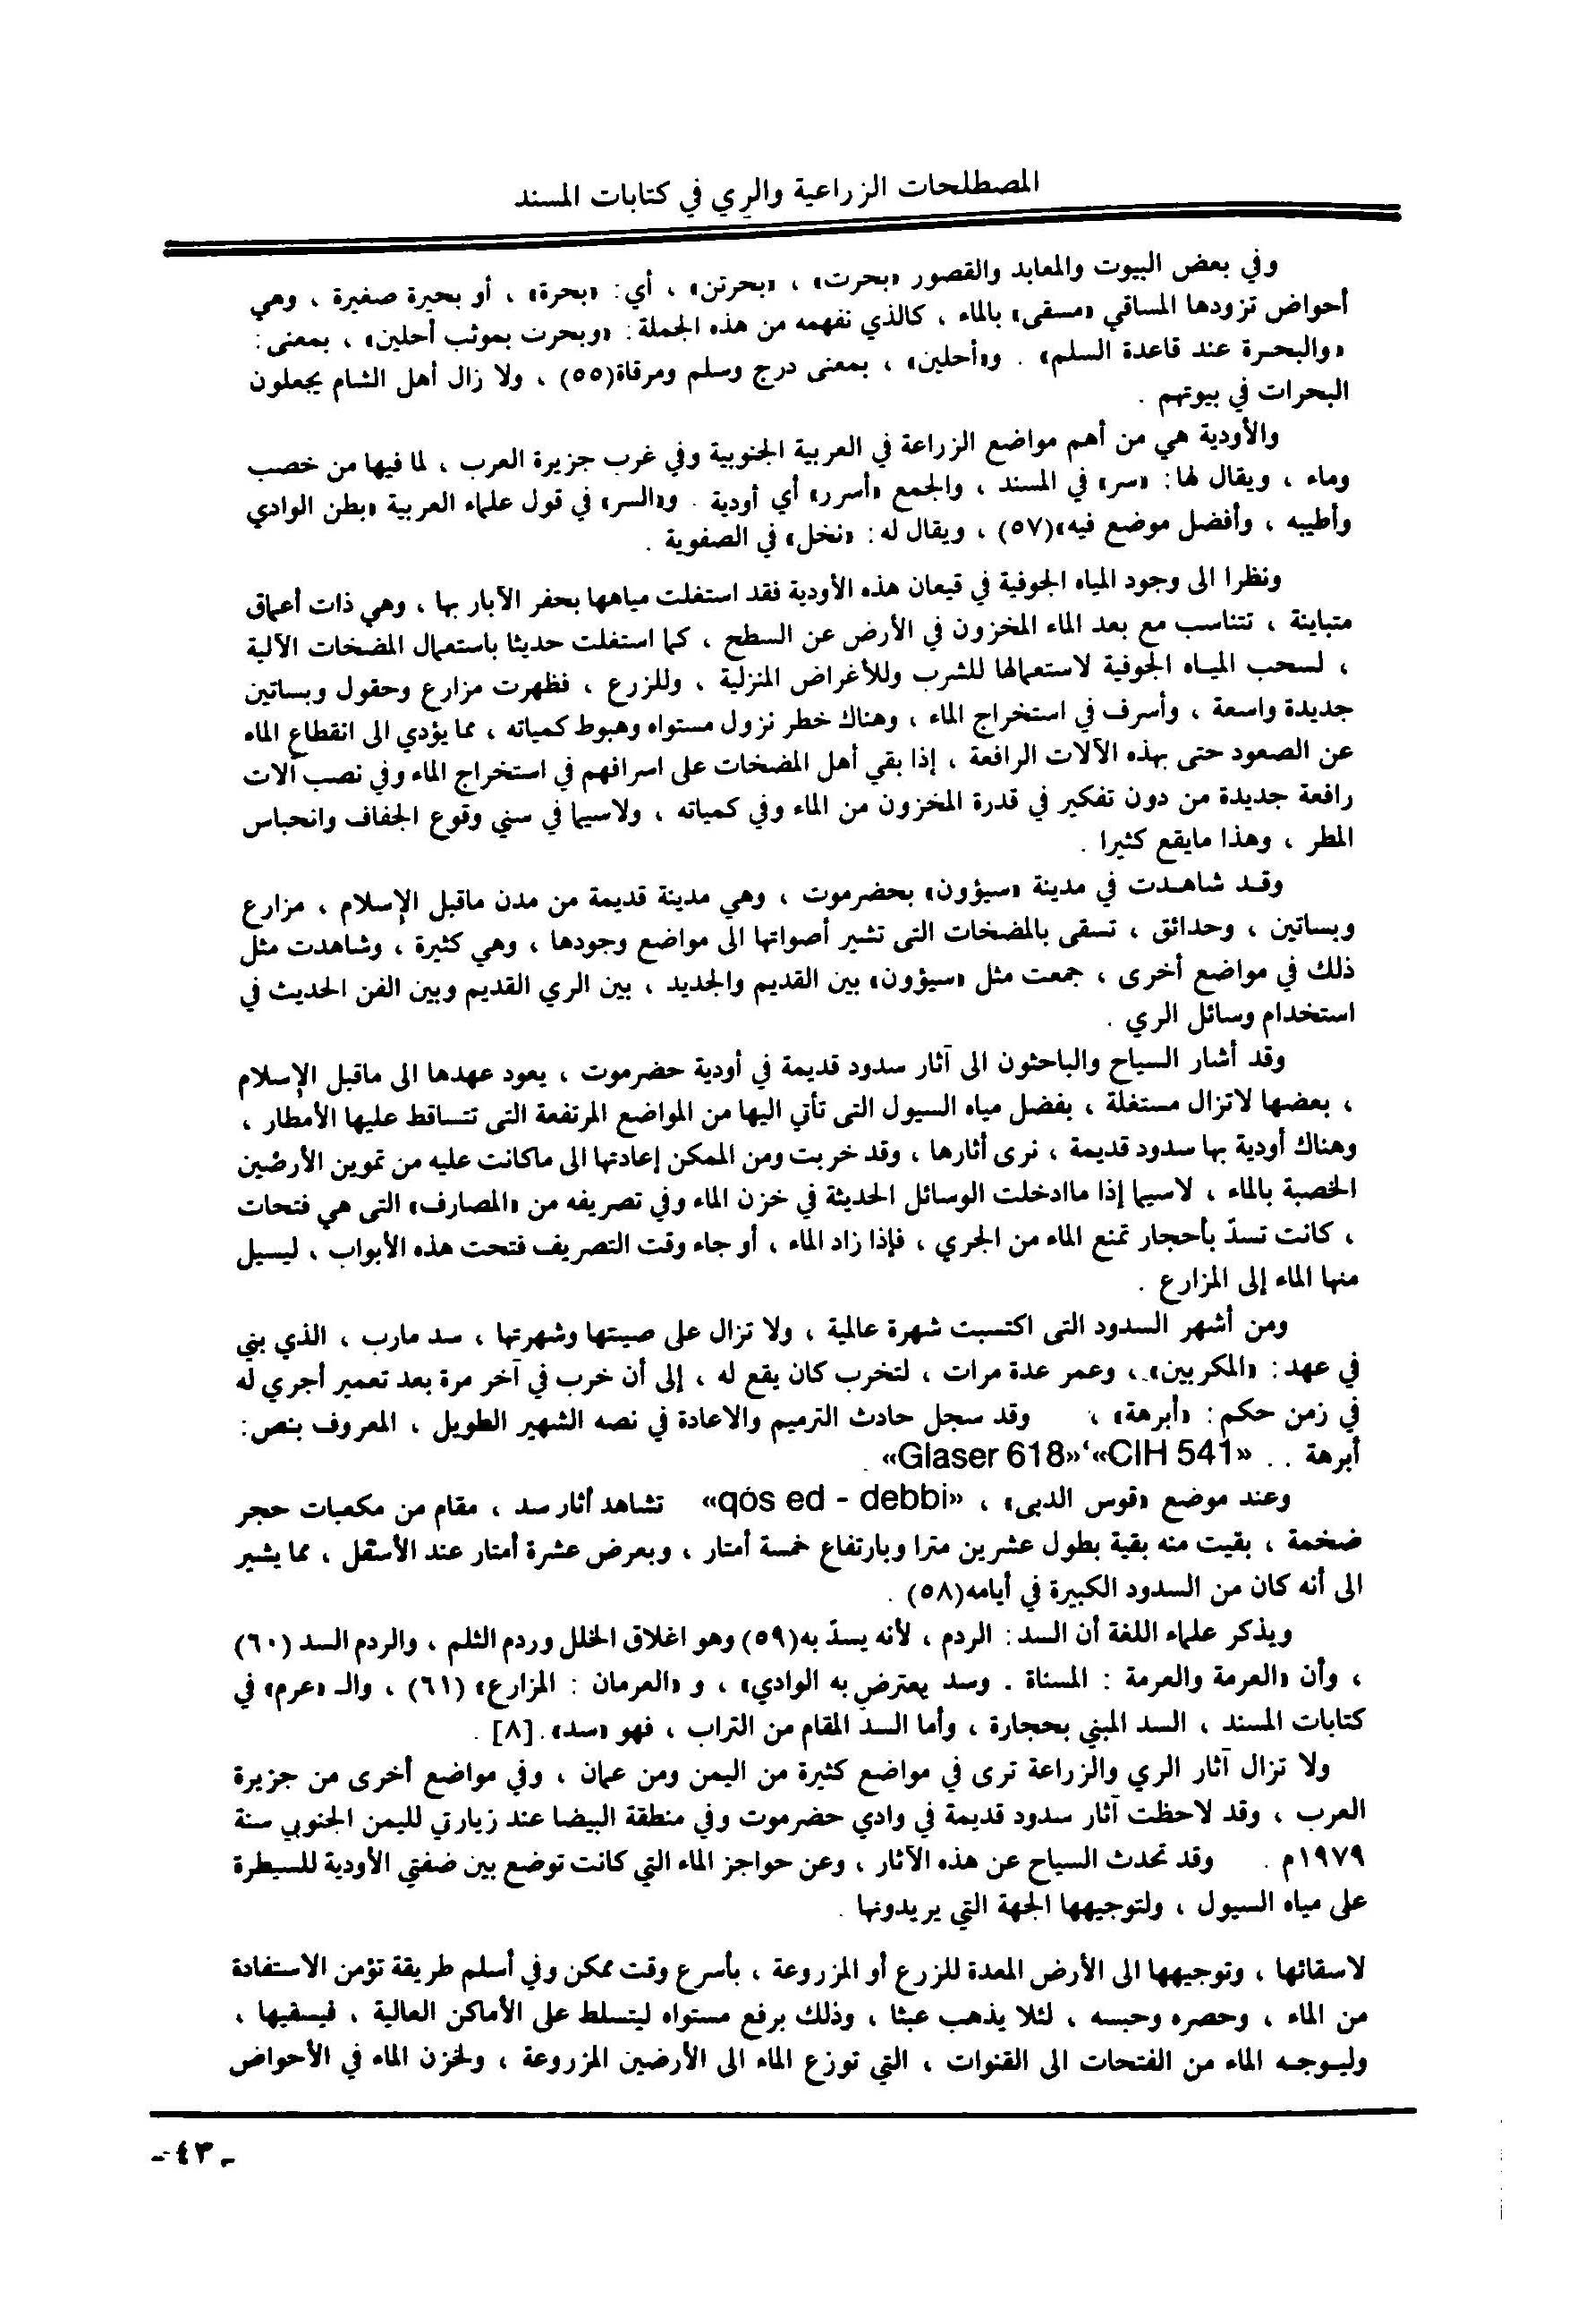 المصطلحات الزراعية والري في كتابات المسند
وفي بعض البيوت والمعابد والقصور «بحرت» ، «بحرتن» ، أي: «بحرة» ، أو بحيرة صغيرة ، وهي
أحواض تزودها المساقي «مسقى» بالماء ، كالذي نفهمه من هذه الجملة: «وبحرت بموثب أحلين» ، بمعنى:
«والبحرة عند قاعدة السلم» . و«أحلين» ، بمعنى درج وسلم ومرقاة(٥٥) ، ولا زال أهل الشام يجعلون
البحرات في بيوتهم .
والأودية هي من أهم مواضع الزراعة في العربية الجنوبية وفي غرب جزيرة العرب ، لما فيها من خصب
وماء ، ويقال لها: «سر» في المسند ، والجمع «أسرر» أي أودية . و«السر» في قول علماء العربية «بطن الوادي
وأطيبه ، وأفضل موضع فيه»(٥٧) ، ويقال له: «نخل» في الصفوية .
ونظرا الى وجود المياه الجوفية في قيعان هذه الأودية فقد استغلت مياهها بحفر الآبار بها ، وهي ذات أعماق
متباينة ، تتناسب مع بعد الماء المخزون في الأرض عن السطح ، كما استغلت حديثا باستعمال المضخات الآلية
، لسحب المياه الجوفية لاستعمالها للشرب وللأغراض المنزلية ، وللزرع ، فظهرت مزارع وحقول وبساتين
جديدة واسعة ، وأسرف في استخراج الماء ، وهناك خطر نزول مستواه وهبوط كمياته ، مما يؤدي الى انقطاع الماء
عن الصعود حتى بهذه الآلات الرافعة ، إذا بقي أهل المضخات على اسرافهم في استخراج الماء وفي نصب آلات
رافعة جديدة من دون تفكير في قدرة المخزون من الماء وفي كمياته ، ولاسيما في سني وقوع الجفاف وانحباس
المطر ، وهذا مايقع كثيرا .
وقد شاهدت في مدينة «سيؤون» بحضرموت ، وهي مدينة قديمة من مدن ماقبل الإسلام ، مزارع
وبساتين ، وحدائق ، تسقى بالمضخات التى تشير أصواتها الى مواضع وجودها ، وهي كثيرة ، وشاهدت مثل
ذلك في مواضع أخرى ، جمعت مثل «سيؤون» بين القديم والجديد ، بين الري القديم وبين الفن الحديث في
استخدام وسائل الري .
وقد أشار السياح والباحثون الى آثار سدود قديمة في أودية حضرموت ، يعود عهدها الى ماقبل الإسلام
، بعضها لاتزال مستغلة ، بفضل مياه السيول التى تأتي اليها من المواضع المرتفعة التى تتساقط عليها الأمطار ،
وهناك أودية بها سدود قديمة ، نرى أثارها ، وقد خربت ومن الممكن إعادتها الى ماكانت عليه من تموين الأرضين
الخصبة بالماء ، لاسيما إذا ماادخلت الوسائل الحديثة في خزن الماء وفي تصريفه من «المصارف» التى هي فتحات
، كانت تسدّ بأحجار تمنع الماء من الجري ، فإذا زاد الماء ، أو جاء وقت التصريف فتحت هذه الأبواب ، ليسيل
منها الماء إلى المزارع .
ومن أشهر السدود التى اكتسبت شهرة عالمية ، ولا تزال على صيتها وشهرتها ، سد مارب ، الذي بني
في عهد: «المكربين» ، وعمر عدة مرات ، لتخرب كان يقع له ، إلى أن خرب في آخر مرة بعد تعمير أجري له
في زمن حكم: «أبرهة» ، وقد سجل حادث الترميم والاعادة في نصه الشهير الطويل ، المعروف بنص:
أبرهة . . «CIH 541»، «Glaser 618» .
وعند موضع «قوس الدبى» ، «qós ed - debbi» تشاهد أثار سد ، مقام من مكعبات حجر
ضخمة ، بقيت منه بقية بطول عشرين مترا وبارتفاع خمسة أمتار ، وبعرض عشرة أمتار عند الأسفل ، مما يشير
الى أنه كان من السدود الكبيرة في أيامه(٥٨) .
ويذكر علماء اللغة أن السد: الردم ، لأنه يسدّ به(٥٩) وهو اغلاق الخلل وردم الثلم ، والردم السد (٦٠)
، وأن «العرمة والعرمة : المسناة . وسد يعترض به الوادي» ، و «العرمان : المزارع» (٦١) ، والـ «عرم» في
كتابات المسند ، السد المبني بحجارة ، وأما السد المقام من التراب ، فهو «سد».[٨] .
ولا تزال آثار الري والزراعة ترى في مواضع كثيرة من اليمن ومن عمان ، وفي مواضع أخرى من جزيرة
العرب ، وقد لاحظت آثار سدود قديمة في وادي حضرموت وفي منطقة البيضا عند زيارتي لليمن الجنوبي سنة
١٩٧٩م . وقد تحدث السياح عن هذه الآثار ، وعن حواجز الماء التي كانت توضع بين ضفتي الأودية للسيطرة
على مياه السيول ، ولتوجيهها الجهة التي يريدونها .
لاسقائها ، وتوجيهها الى الأرض المعدة للزرع أو المزروعة ، بأسرع وقت ممكن وفي أسلم طريقة تؤمن الاستفادة
من الماء ، وحصره وحبسه ، لئلا يذهب عبثا ، وذلك برفع مستواه ليتسلط على الأماكن العالية ، فيسقيها ،
وليوجه الماء من الفتحات الى القنوات ، التي توزع الماء الى الأرضين المزروعة ، ولخزن الماء في الأحواض
ـ ٤٣ ـ